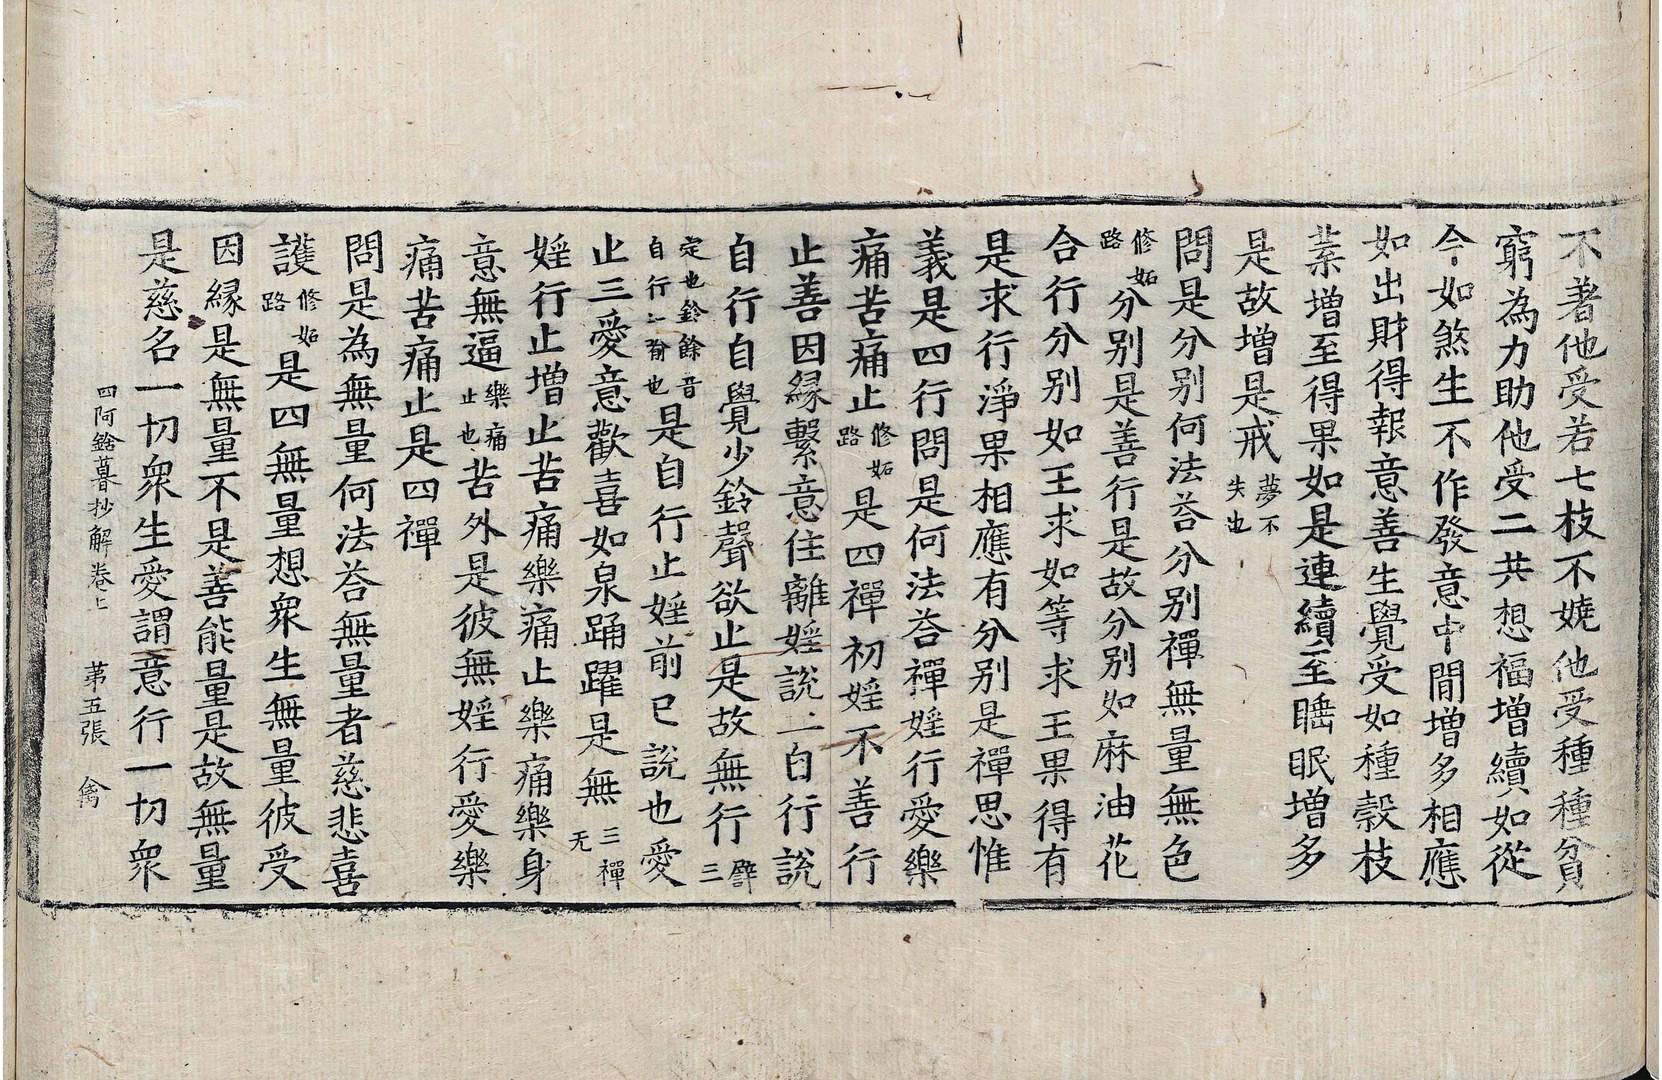 不著他受若七枝不嬈他受種種貧
窮為力助他受二共想福增續如從
今如煞生不作發意中間增多相應
如出財得報意善生覺受如種穀枝
葉增至得果如是連續至睡眠增多
是故增是戒夢不失也
問是分別何法荅分別禪無量無色
修妬路分別是善行是故分別如麻油花
合行分別如王求如等求王果得有
是求行淨果相應有分別是禪思惟
義是四行問是何法荅禪婬行愛樂
痛苦痛止修妬路是四禪初婬不善行
止善因緣繫意住離婬說二自行說
自行自覺少鈴聲欲止是故無行躃三
定也鈴餘音自行二喻也是自行止婬前已說也愛
止三愛意歡喜如泉踊躍是無三禪无
婬行止增止苦痛樂痛止樂痛樂身
意無逼樂痛止也苦外是彼無婬行愛樂
痛苦痛止是四禪
問是為無量何法荅無量者慈悲喜
護修妬路是四無量想衆生無量彼受
因緣是無量不是善能量是故無量
是慈名一切衆生愛謂意行一切衆
四阿鋡暮抄解卷上　第五張　禽